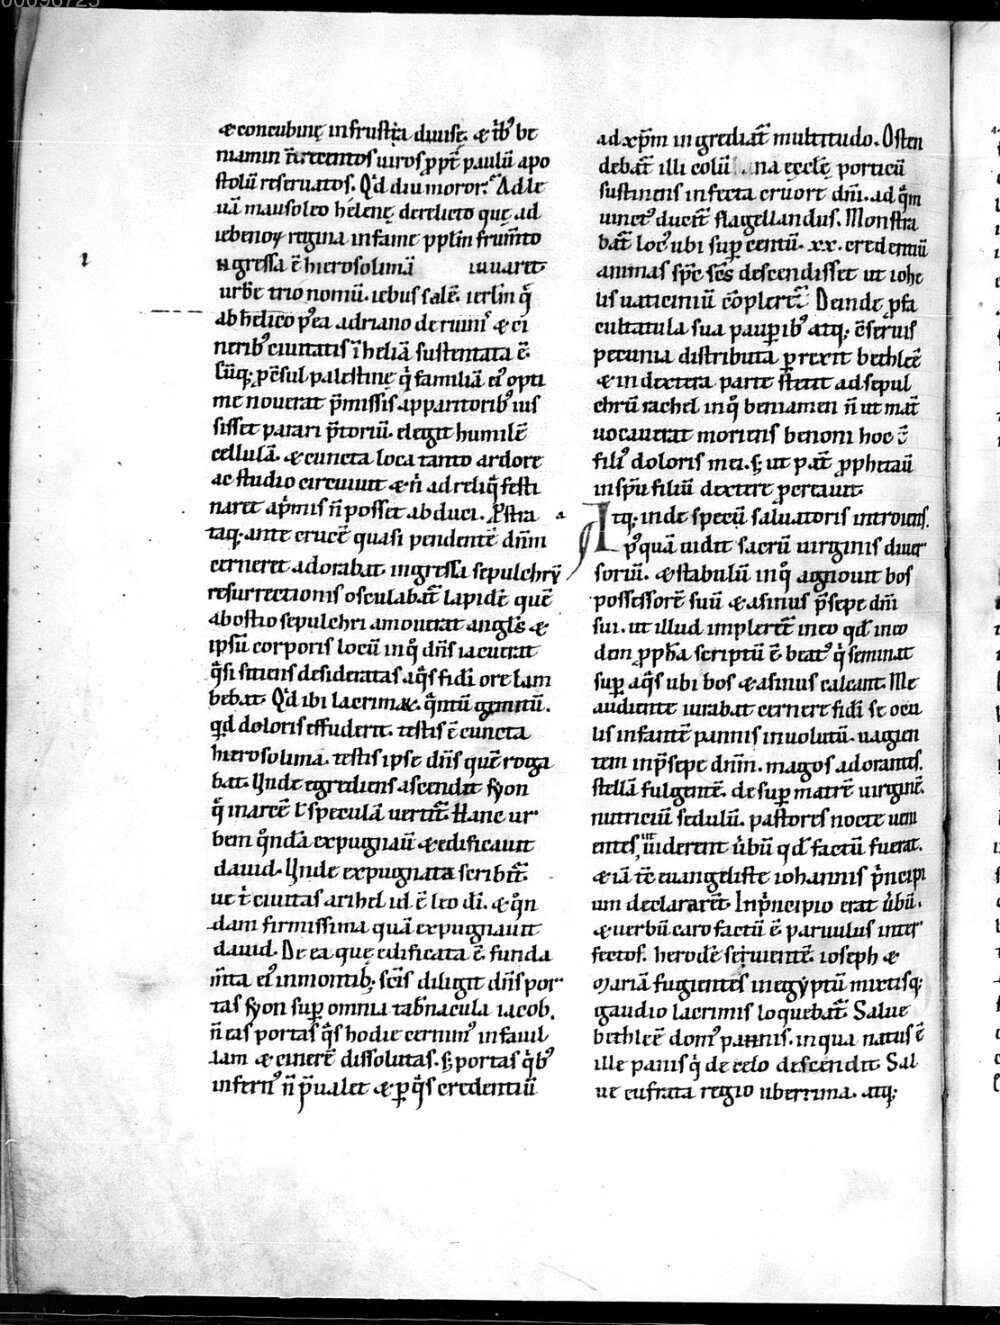 00098725
& concubinę in frustra diuisę. & t̅b᷒ be
niamin tͥrecentos uiros ꝓpt̅ paulū apo
stolū reseruatos. Qͥd diu moror. Ad le
uā mausoleo helenę derelicto quę ad
iebenoꝝ regina in fame ppl̅m frum̅to
ngressa ē hierosolimā iuuaret
urbē trionomū. iebus salē. ierl̅m q̄
ab helio p᷒ea adriano de ruinis & ci
nerib᷒ ciuitatis ī heliā sustentata ē.
Cūq; p̄sul palestinę qͥ familiā ei᷒ opti
me nouerat p̄missis apparitorib᷒ ius
sisset parari p̄toriū. elegit humilē
cellulā. & cuncta loca tanto ardore
ac studio circuiuit & n̄ ad reliqͣ festi
naret a p̄mis n̄ posset abduci. Prostra
taq. ante crucē quasi pendentē dn̅m
cerneret adorabat. ingressa sepulchrū
resurrectionis osculabat̅ lapidē quē
ab ostio sepulchri amouerat angl̅s &
ipsū corporis locū in qͦ dn̅s iacuerat
qͣsi sitiens desideratas aqͣs fidi ore lam
bebat. Qͥd ibi lacrimaꝝ. qͣntū gemitū.
qͥd doloris effuderit. testis ē cuncta
hierosolima. testis ipse dn̅s quē roga
bat. Unde egrediens ascendit syon
q̄ in arcē l̵ speculā uertit̅. Hanc ur
bem qͦndā expugnauit & edificauit
dauid. Unde expugnata scribit̅.
ue t̅ ciuitas arihel id ē leo dī. & qͦn
dam firmissima quā expugnauit
dauid. De ea quę edificata ē. funda
m̅ta ei᷒ in montib;. scīs diligit dn̅s por
tas syon sup̱ omnia tab̅nacula iacob.
n̄ eas portas qͣs hodie cernim᷒ in fauil
lam & cinerē dissolutas. s; portas qͥb᷒
infern᷒ n̄ p̄ualet & p̱ qͣs credentiū
ad xp̅m ingrediat̅ multitudo. Osten
debat̅ illi colūna ęcclę̅ porticū
sustinens infecta cruore dn̅i. ad qͣm
uinct᷒ dicit̅ flagellandus. Monstra
bat̅ loc᷒ ubi sup̱ centū. xx. credentiū
animas sp̅c sc̅s descendisset ut iohe
lis uaticiniū cōpleret̅. Deinde p᷒ fa
cultatula sua paup̱ib᷒ atq; cōseruis
pecunia distributa p̱rexit bethleē
& in dextera parte stetit ad sepul
chrū rachel in qͦ beniamen n̄ ut mat̅
uocauerat moriens benoni hoc ē
fili᷒ doloris mei. s; ut pat̅ ꝓphetauit
in sp̅u filiū dextere peperauit.
Atq; inde specū saluatoris introiens.
p᷒quā uidit sacrū uirginis diuer
soriū. & stabulū in qͦ agnouit bos
possessorē suū & asinus p̄sepe dn̅i
sui. ut illud impleret̅ in eo qd̅ in eo
dem ꝓpha̅ scriptū ē. beat᷒ qͥ seminat
sup̱ aqͣs ubi bos & asinus calcant. Me
audiente iurabat cernere fidi se ocu
lis infantē pannis inuolutū. uagien
tem in p̄sepe dn̅m. magos adorantes.
stellā fulgentē. desup̱ matrē uirginē.
nutriciū sedulū. pastores nocte ueni
entes, ut uiderent ūbū qd̅ factū fuerat.
& iā tc̅ euangeliste iohannis p̄ncipi
um declararet̅. In p̄ncipio erat ūbū.
& uerbū caro factū ē. paruulos inter
fectos. herodē seuientē. ioseph &
Mariā fugientes in egyptū mixtisq;
gaudio lacrimis loquebat̅. Salue
bethleē dom᷒ panis. in qua natus ē
ille panis qͥ de celo descendit. Sal
ue eufrata regio uberrima. atq;